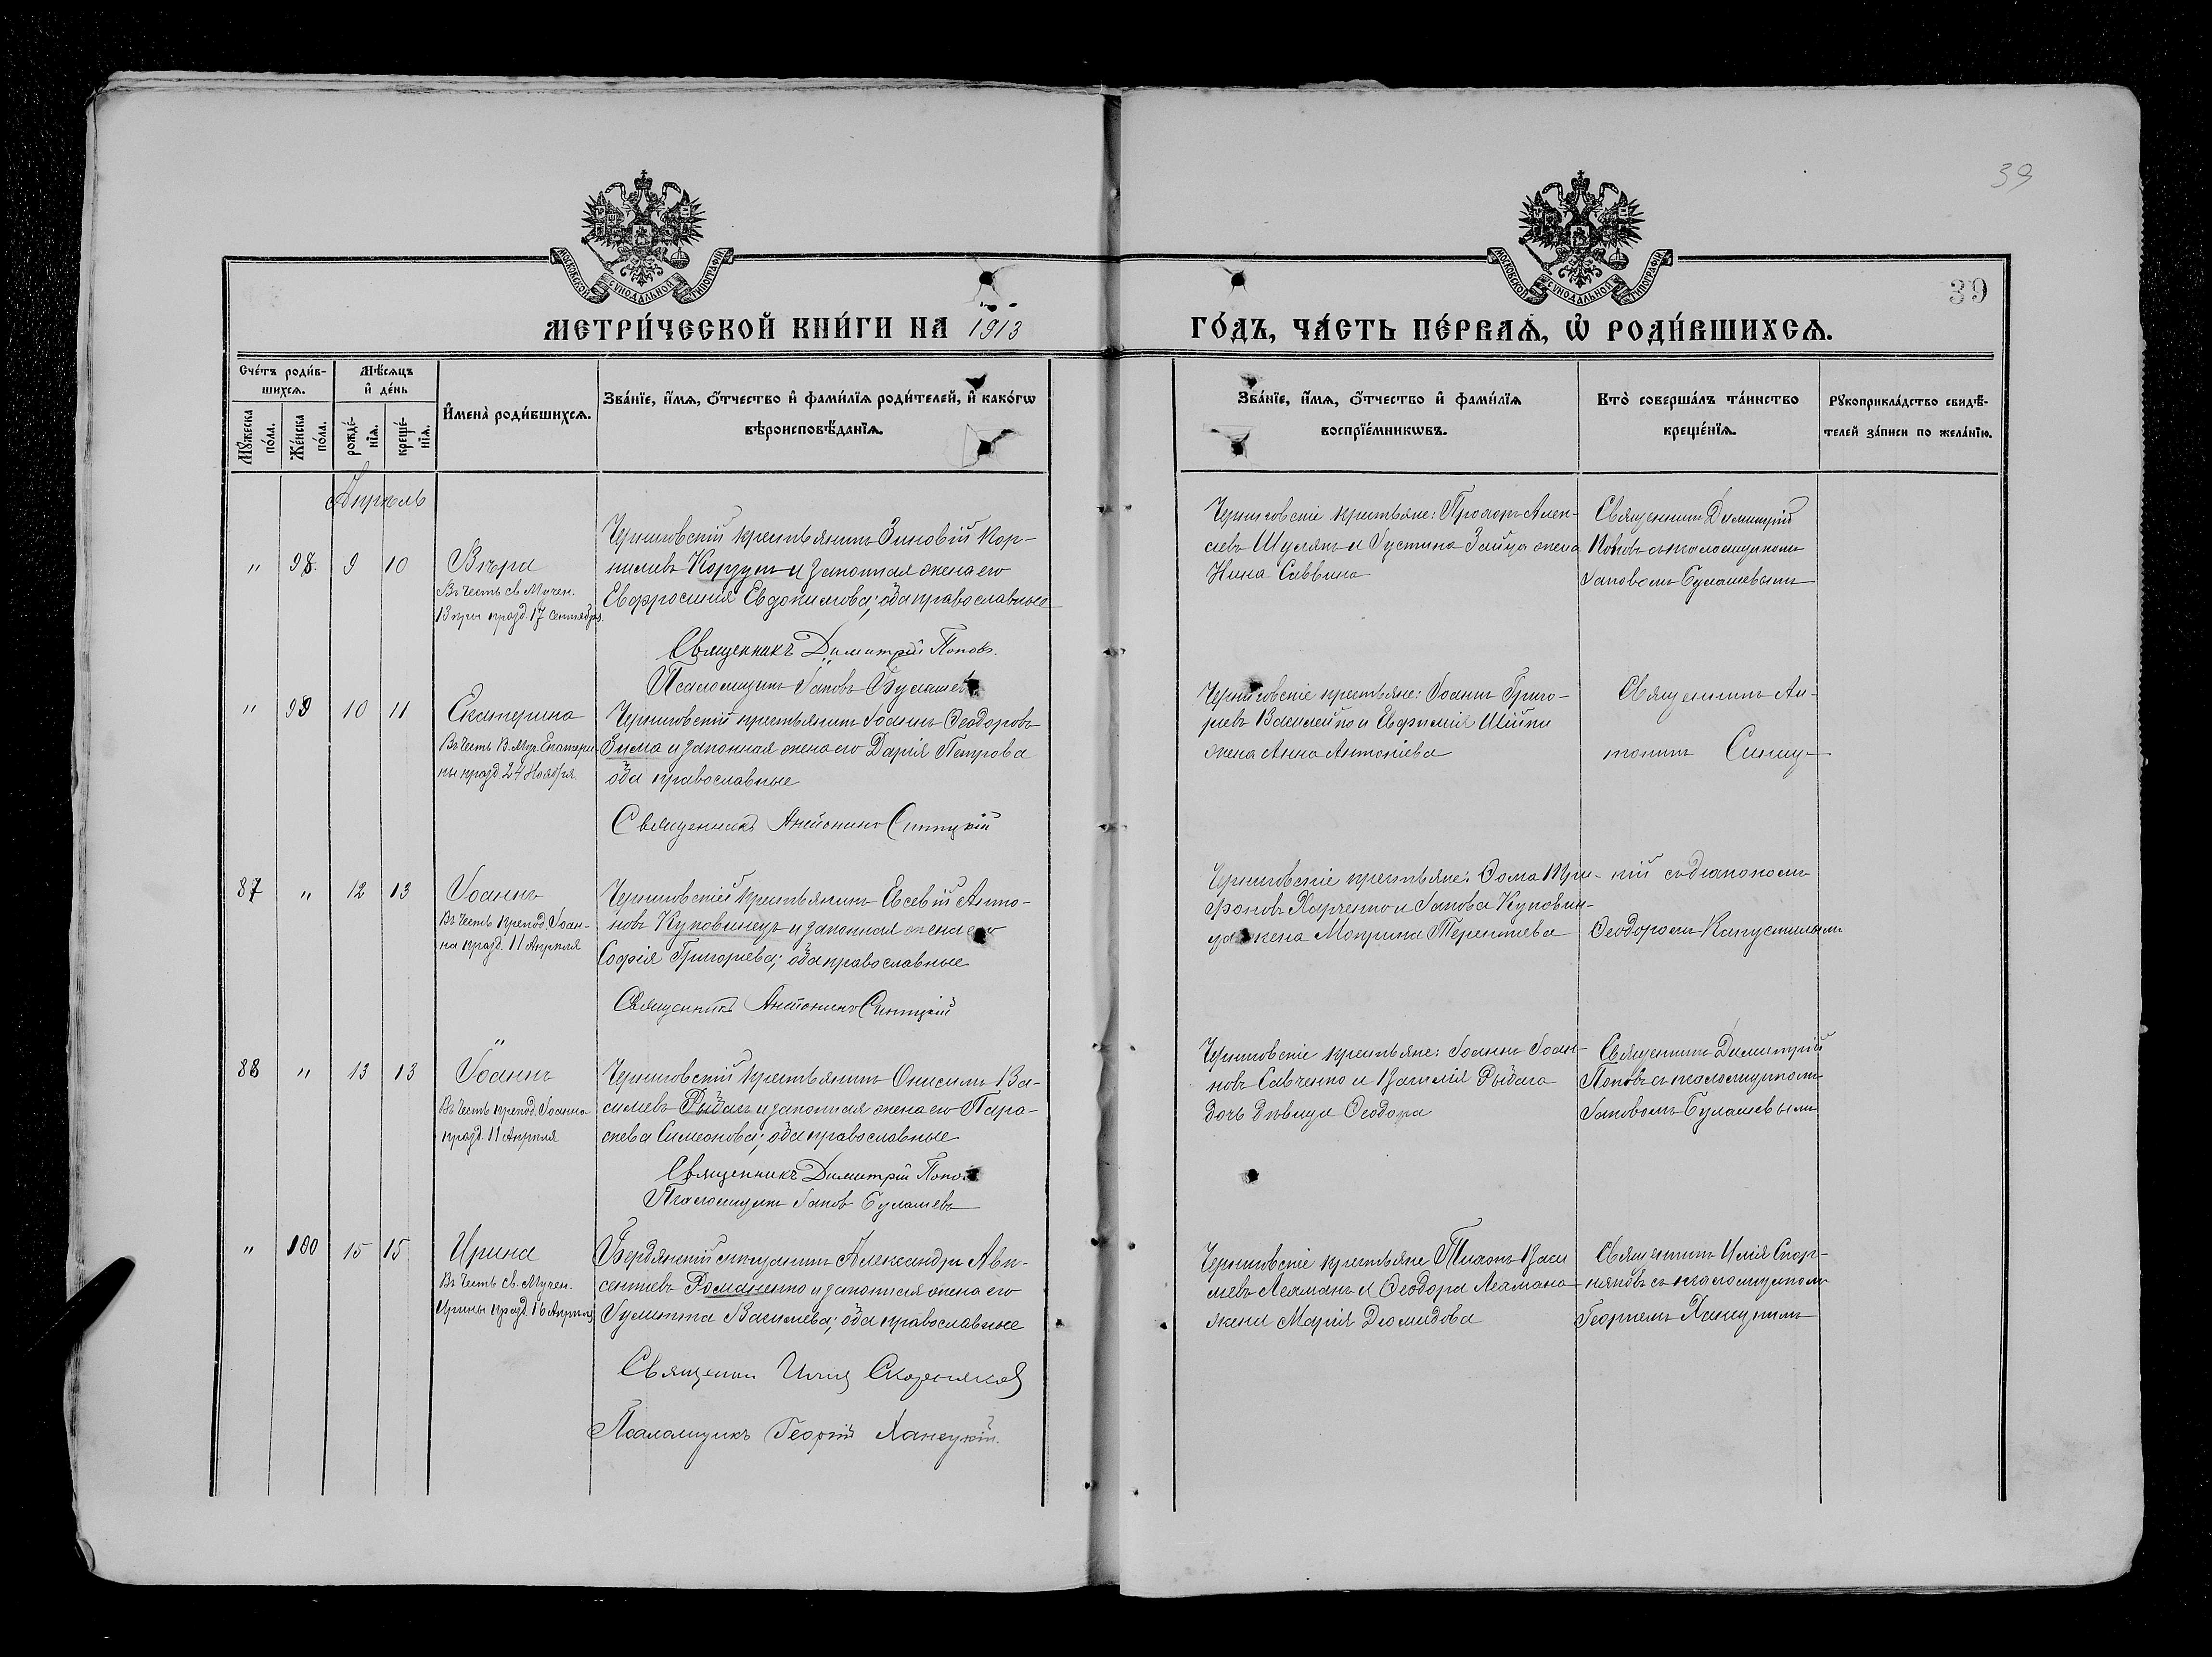 39
МОСКОВСКОЙ СУНОДАЛЬНОЙ ТИПОГРАФІИ
МОСКОВСКОЙ СУНОДАЛЬНОЙ ТИПОГРАФІИ
39
МЕТРИ́ЧЕСКОЙ КНИ́ГИ НА 1913 ГО́ДЪ, ЧА́СТЬ ПЕ́РВАѦ, Ѡ РОДИ́ВШИХСѦ.
Сче́тъ роди́в-
шихсѧ.
Мꙋжеска по́ла.
Же́нска по́ла.
Мѣ́сѧцъ и де́нь
рожде́-
нїѧ.
креще́-
нїѧ.
Имена̀ роди́вшихсѧ.
Зва́нїе, и́мѧ, ѻ́тчество и фами́лїѧ роди́телей, и како́гѡ
вѣроисповѣ́данїѧ.
Зва́нїе, и́мѧ, ѻ́тчество и фами́лїѧ
воспрїе́мникѡвъ.
Кто̀ соверша́лъ та́инство
креще́нїѧ.
Рꙋкоприкла́дство свидѣ́-
телей за́писи по жела́нїю.
Апрѣль
" 98. 9 10
Вѣра
Въ честь св. Мучен.
Вѣры празд. 17 Сентября.
Черниговскій крестьянинъ Зиновій Кор-
ниліевъ Корзунъ и законная жена его
Евфросинія Евдокимова; оба православные
Священникъ Димитрій Поповъ.
Псаломщикъ Іаковъ Булашевъ
Черниговскіе крестьяне: Алек-
и Іустина Зайца жена
Нина Саввина
Священникъ Димитрій
Поповъ съ псаломщикомъ
Іаковомъ Булашевымъ
" 99 10 11
Екатерина
Въ честь В. Муч. Екатери-
ны празд. 24 Ноября
Черниговскій крестьянинъ Іоаннъ Ѳеодоровъ
Зима и законная жена его Дарія Петрова
оба православные
Священникъ Антонинъ Синицкій
Черниговскіе крестьяне: Іоаннъ Григо-
ріевъ Василейко и Евфимія
жена Анна Антоніева
Священникъ Ан-
тонинъ Синиц-
87 " 12 13
Іоаннъ
Въ честь препод. Іоан-
на празд. 11 Апрѣля
Черниговскій крестьянинъ Евсевій Анто-
новъ Куповинецъ и законная жена его
Софія Григорьева; оба православные
Священникъ Антонинъ Синицкій
Черниговскіе крестьяне: Ѳома Три-
фоновъ Харченко и Іакова Куповин-
ца жена Мокрина Терентіева
кій съ діакономъ
Ѳеодоромъ Капустинымъ
88 " 13 13
Іоаннъ
Въ честь препод. Іоанна
празд. 11 Апрѣля
Черниговскій крестьянинъ Онисимъ Ва-
силіевъ Рыбакъ и законная жена его Пара-
скева Симеонова; оба православные
Священникъ Димитрій Поповъ
Псаломщикъ Іаков Булашевъ
Черниговскіе крестьяне: Іоаннъ Іоан-
новъ Савченко и Василія Рыбака
дочь дѣвица Ѳеодора
Священникъ Димитрій
Поповъ съ псаломщикомъ
Іаковомъ Булашевымъ
" 100 15 15
Ирина
Въ честь св. Мучен.
Ирины празд. 16 Апрѣля
Бердянскій мѣщанинъ Александръ Авк-
сентіевъ Романенко и законная жена его
Іулитта Василіева; оба православные
Священник Илія Скорняков
Псаломщикъ Георгій Ханецкій.
Черниговскіе крестьяне Тихонъ Васи-
ліевъ Лехманъ и Ѳеодора Лехмана
жена Марія Діомидова
Священникъ Илія Скор-
няковъ съ псаломщикомъ
Георгіемъ Ханецкимъ